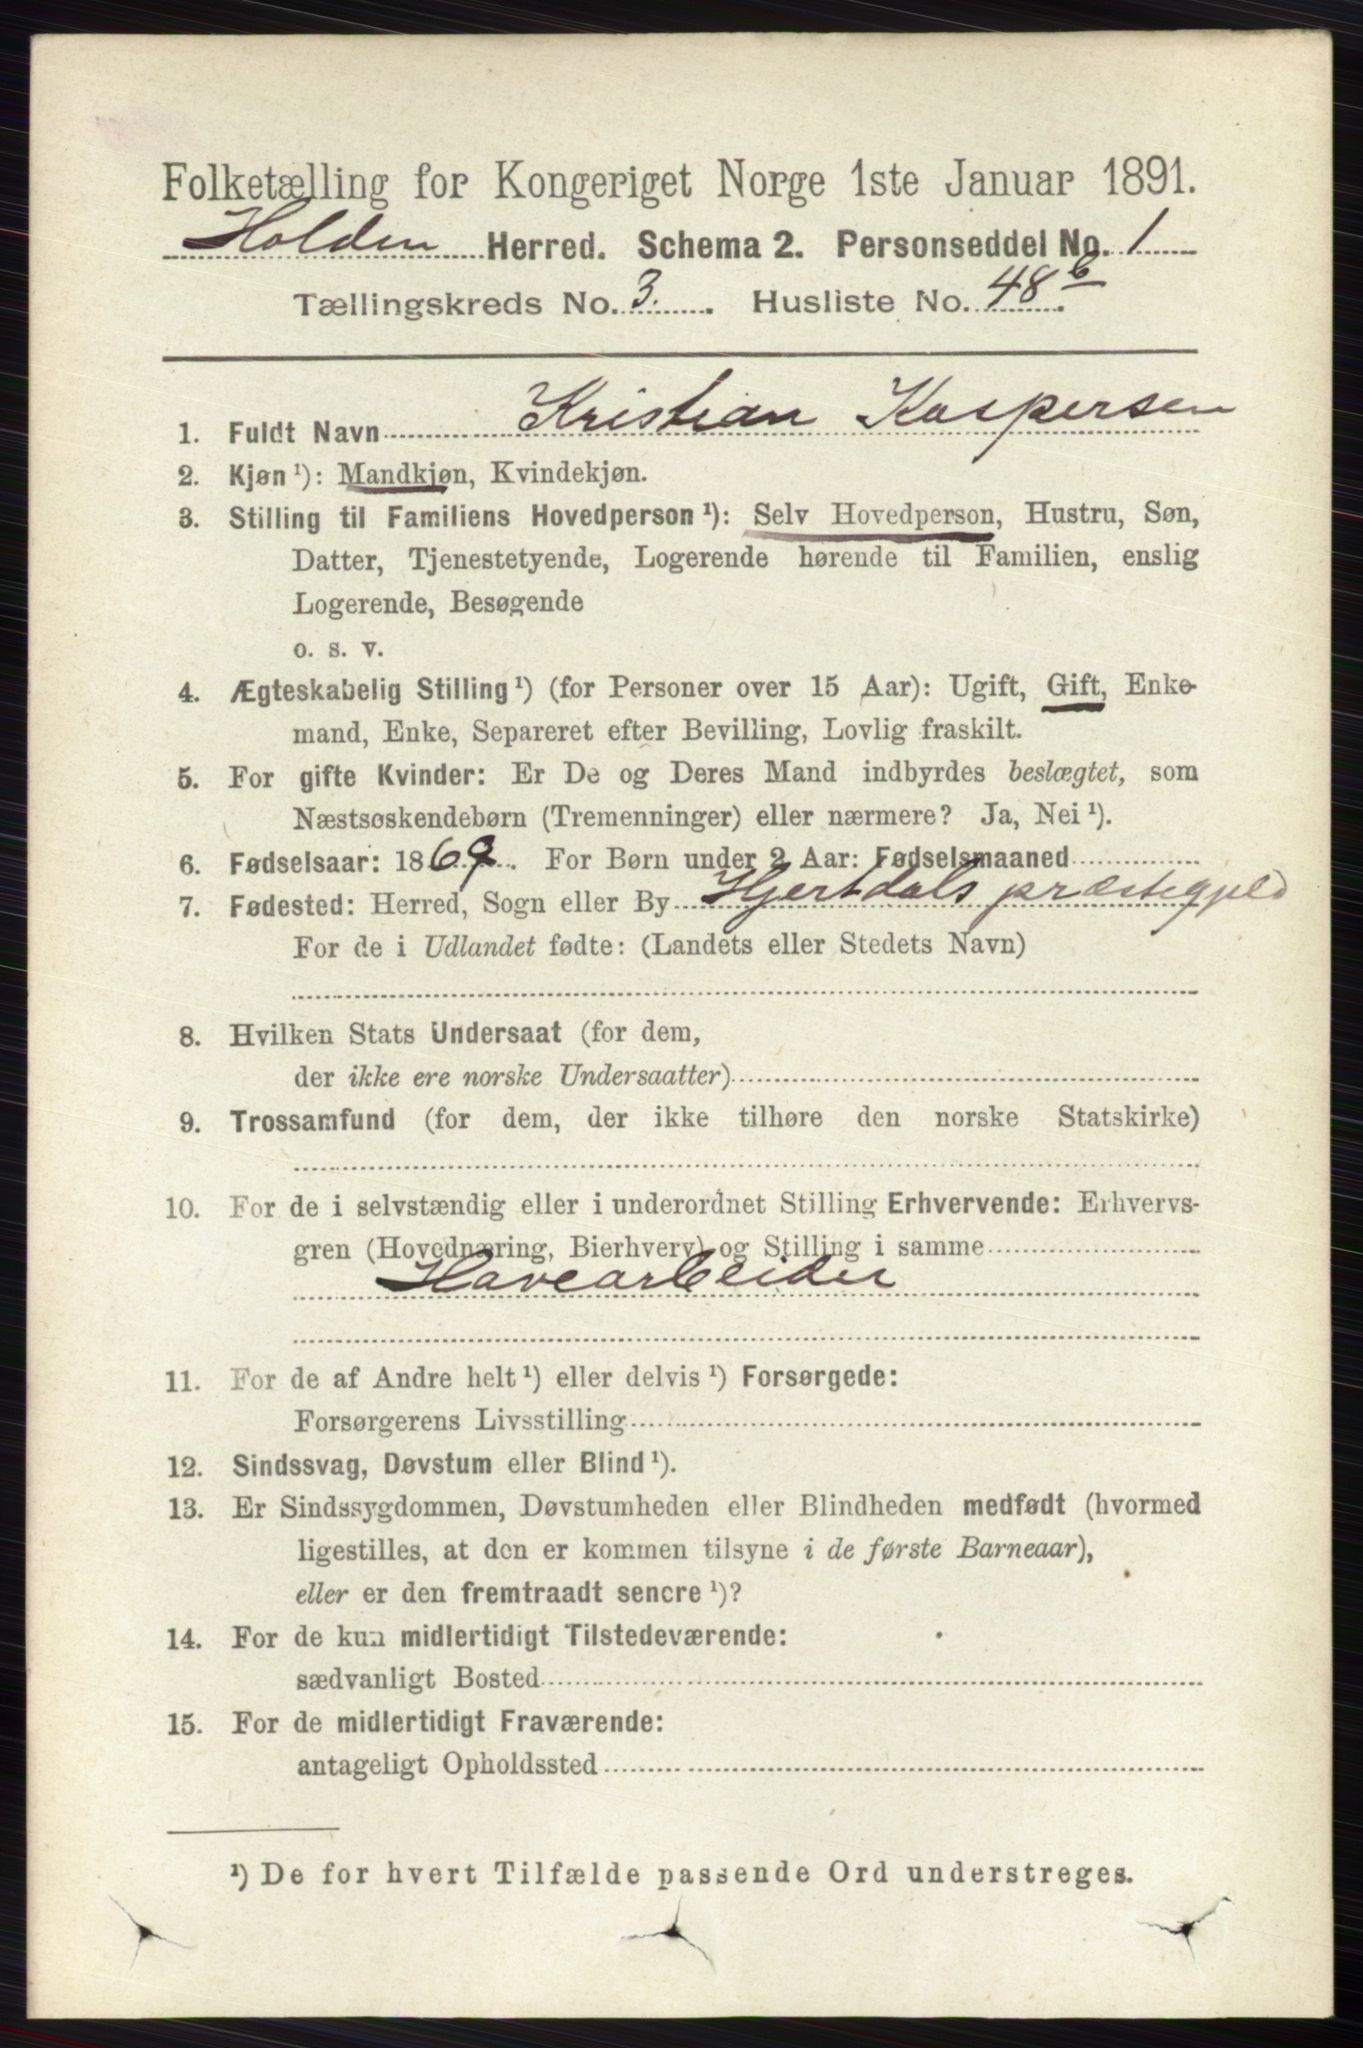 Folketælling for Kongeriget Norge 1ste Januar 1891.
Holden Herred. Schema 2. Personseddel No. 1
Tællingskreds No. 3. Husliste No. 48 b.
1. Fuldt Navn Kristian Kaspersen
2. Kjøn ¹): Mandkjøn, Kvindekjøn.
3. Stilling til Familiens Hovedperson ¹): Selv Hovedperson, Hustru, Søn,
Datter, Tjenestetyende, Logerende hørende til Familien, enslig
Logerende, Besøgende
o. s. v.
4. Ægteskabelig Stilling ¹) (for Personer over 15 Aar): Ugift, Gift, Enke-
mand, Enke, Separeret efter Bevilling, Lovlig fraskilt.
5. For gifte Kvinder: Er De og Deres Mand indbyrdes beslægtet, som
Næstsøskendebørn (Tremenninger) eller nærmere? Ja, Nei ¹).
6. Fødselsaar: 1869. For Børn under 2 Aar: Fødselsmaaned
7. Fødested: Herred, Sogn eller By Hjertdals præstegjeld
For de i Udlandet fødte: (Landets eller Stedets Navn)
8. Hvilken Stats Undersaat (for dem,
der ikke ere norske Undersaatter)
9. Trossamfund (for dem, der ikke tilhøre den norske Statskirke)
10. For de i selvstændig eller i underordnet Stilling Erhvervende: Erhvervs-
gren (Hovednæring, Bierhverv) og Stilling i samme
Havearbeider
11. For de af Andre helt ¹) eller delvis ¹) Forsørgede:
Forsørgerens Livsstilling
12. Sindssvag, Døvstum eller Blind ¹).
13. Er Sindssygdommen, Døvstumheden eller Blindheden medfødt (hvormed
ligestilles, at den er kommen tilsyne i de første Barneaar),
eller er den fremtraadt senere ¹)?
14. For de kun midlertidigt Tilstedeværende:
sædvanligt Bosted
15. For de midlertidigt Fraværende:
antageligt Opholdssted
¹) De for hvert Tilfælde passende Ord understreges.